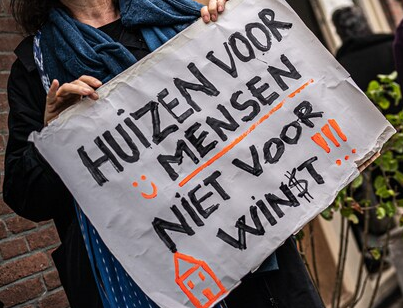 HUIZEN VOOR
MENSEN
NIET VOOR
WIN$T !!!